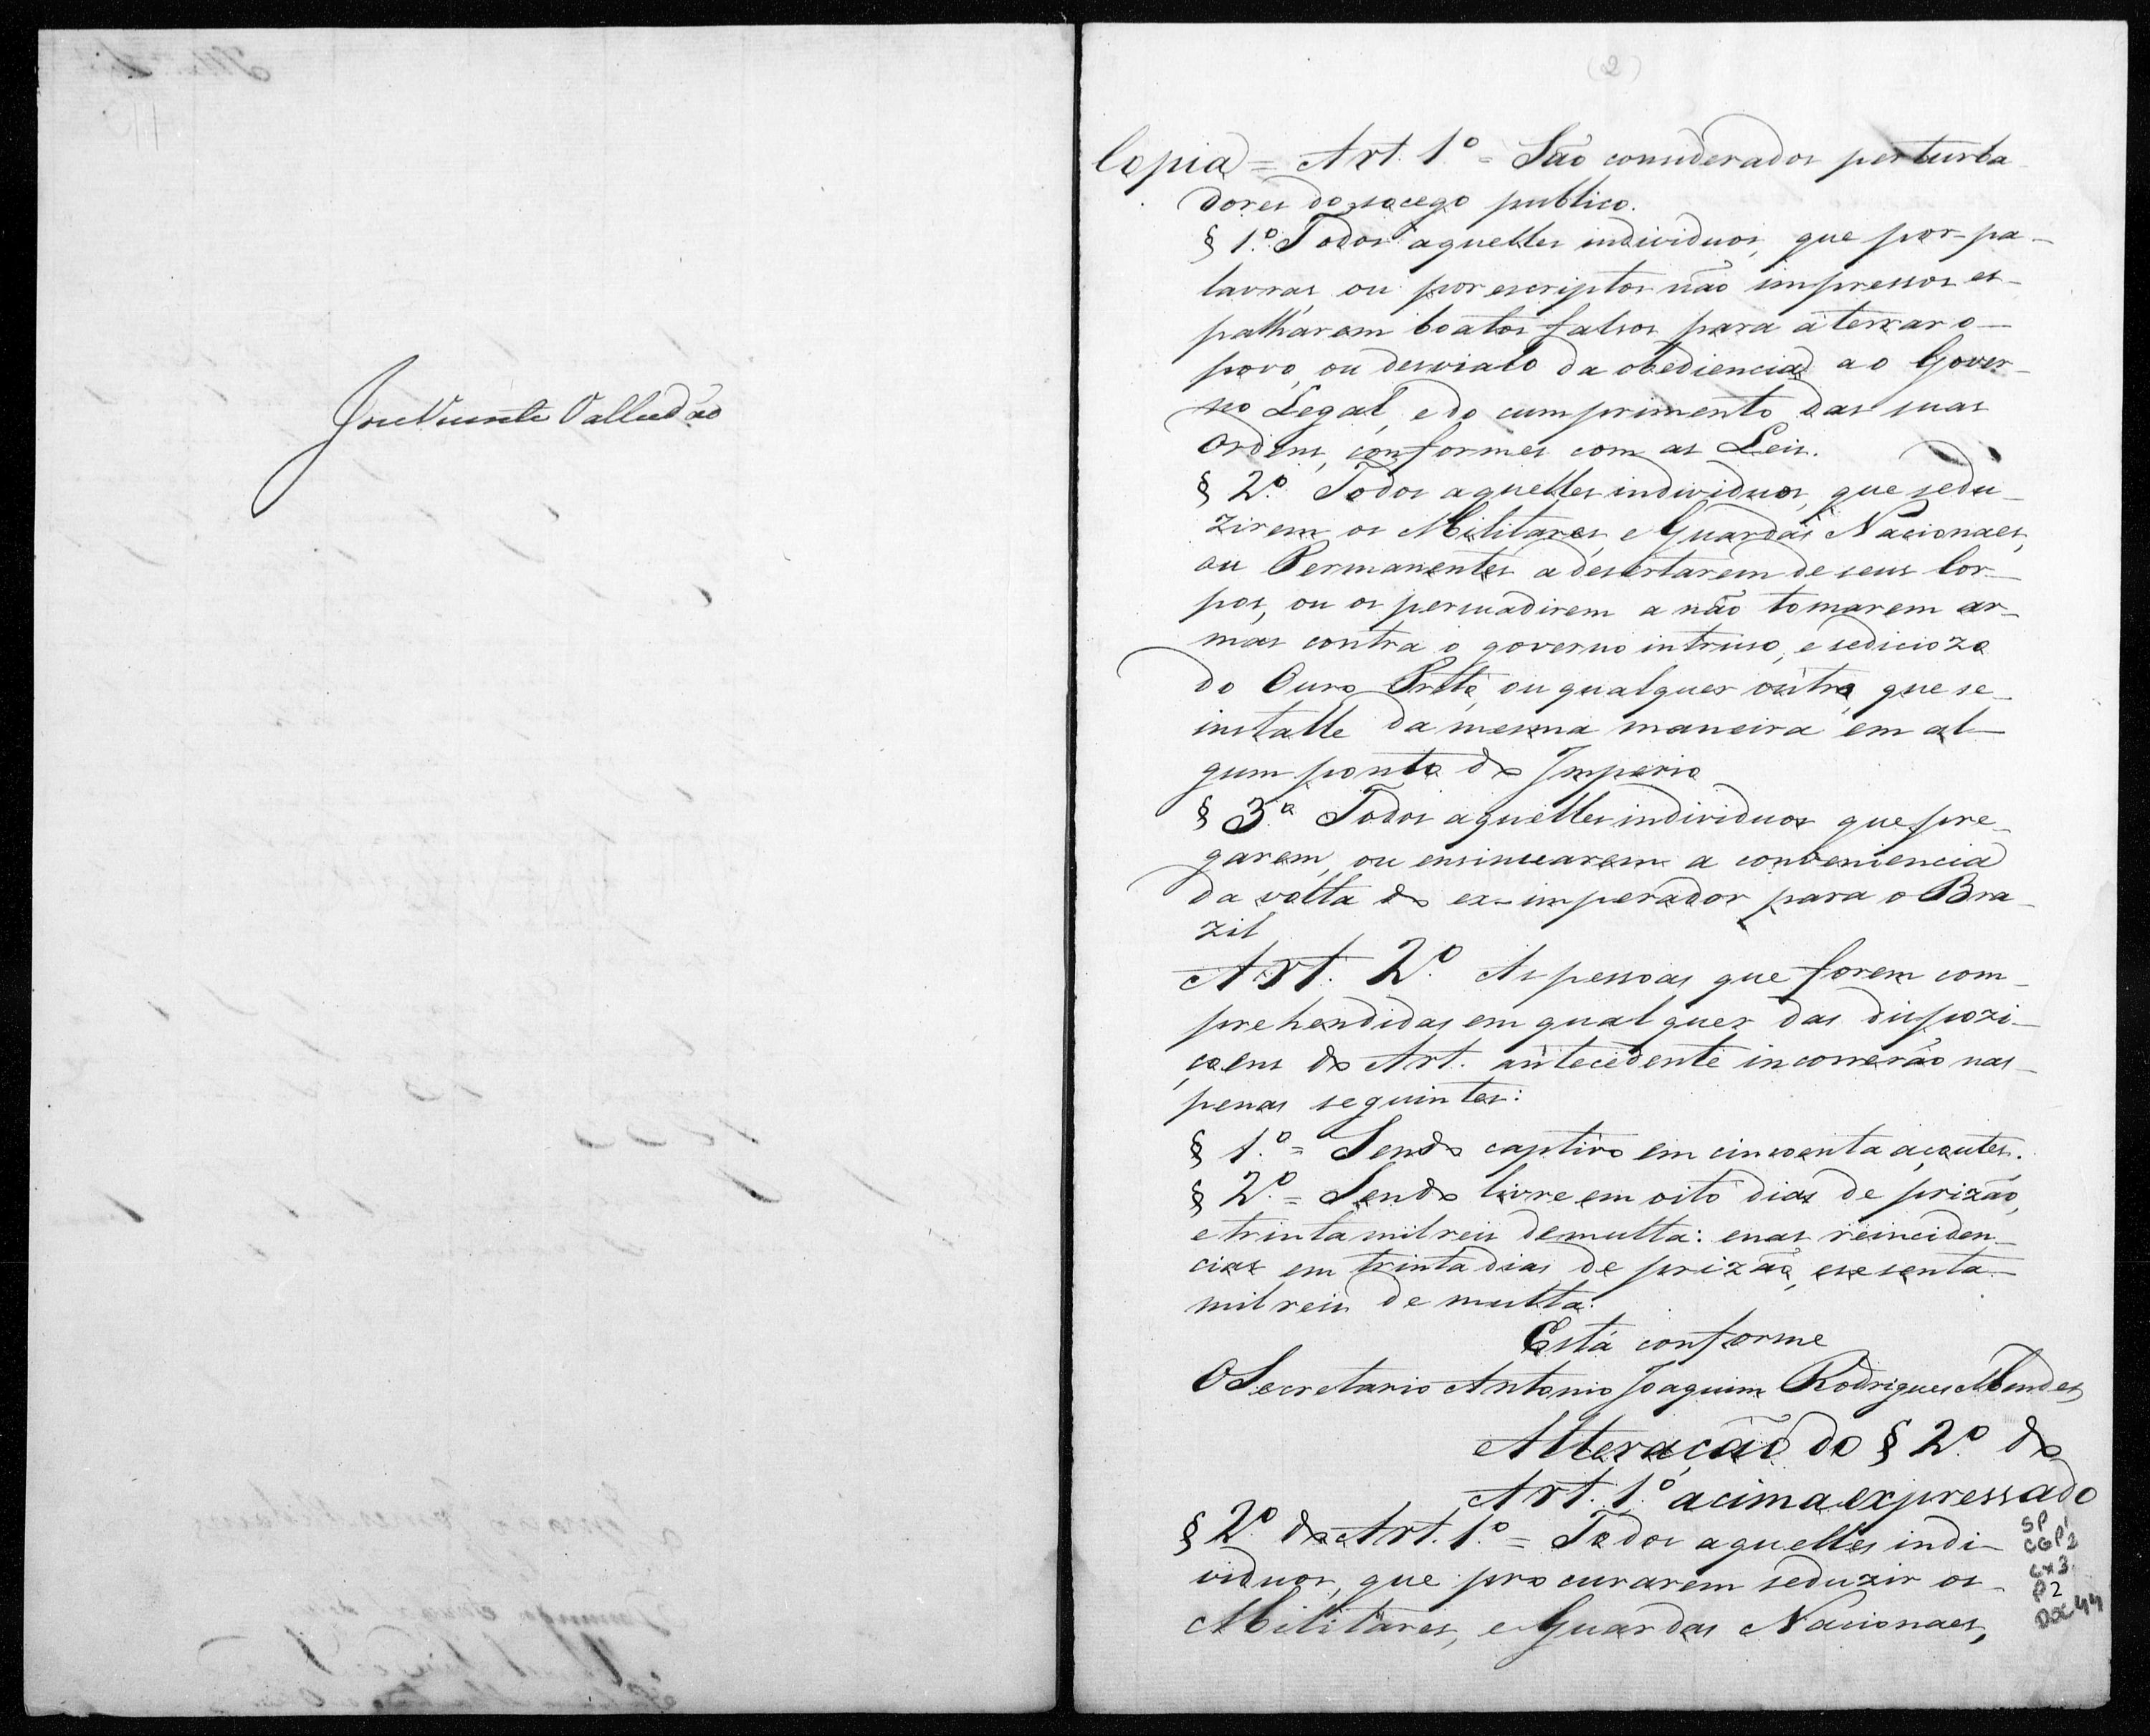 José Vicente Valladão
(2)
Copia = Art. 1º = São considerados perturba
dores do socego publico.
§ 1.º Todos aquelles individuos, que por pa-
lavras, ou por escriptos não impressos es-
palharem boatos falsos para aterrar o-
povo, ou desvialo da obediencia ao Gover-
no Legal, e do cumprimento das suas
Ordens, conformes com as Leis.
§ 2.º Todos aquelles individuos, que sedu-
zirem os Militares, e Guardas Nacionaes,
ou Permanentes a desertarem de seus Cor-
pos, ou os persuadirem a não tomarem ar-
mas contra o governo intruso, e sediciozo
do Ouro Preto, ou qualquer outro, que se-
installe da mesma maneira em al-
gum ponto do Imperio
§ 3.º Todos aquelles individuos que pre-
garem, ou ensinuarem a conveniencia
da volta do ex-imperador para o Bra-
zil
Art. 2.º As pessoas que forem com-
prehendidas em qualquer das dispozi-
çoens do Art. antecedente incorrerão nas-
penas seguintes:
§ 1.º = Sendo captivo em cincoenta açoutes.
§ 2.º = Sendo livre em oito dias de prizão,
e trinta mil reis de multa: e nas reinciden-
cias em trinta dias de prizão, e sesenta-
mil reis de multa.
Está conforme
O Secretario Antonio Joaquim Rodrigues Mendes
Alteração do § 2.º do
Art. 1.º acima expressado
§ 2.º do Art. 1.º = Todos aquelles indi-
viduos, que procurarem seduzir os-
Militares, e Guardas Nacionaes,
SP
CGP1
2
cx3
P2
DOC44